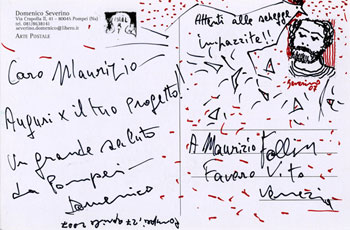 Domenico Severino
Via Crapolla II, 41 - 80045 Pompei (Na)
tel. 081/8638141
severino.domenico@libero.it
ARTE POSTALE
Caro Maurizio
Auguri x il tuo progetto!!
Un grande saluto
da Pompei
Domenico
Pompei, 27 aprile 2007
Attenti alle schegge
impazzite!!
Severino
07
A Maurizio Follin
Favaro V.to
Venezia